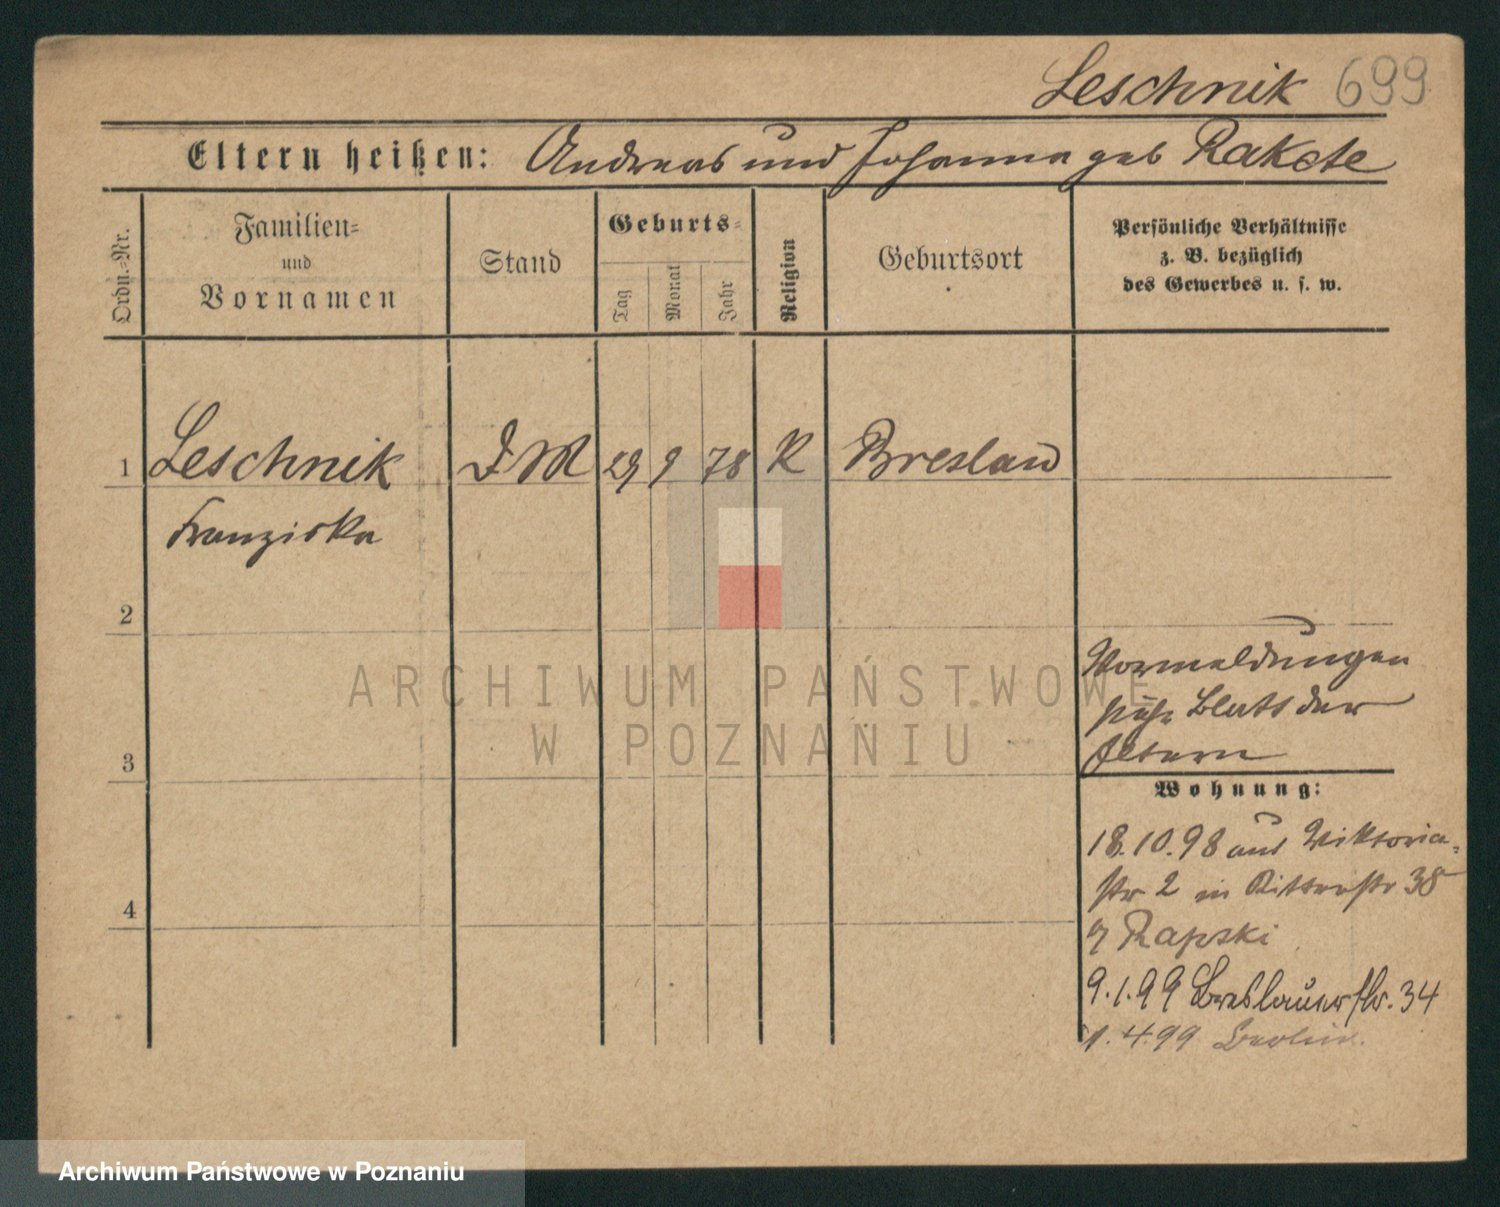 Leschnik 699
Eltern heißen: Andreas und Johanna geb Rakete
Ordn.-Nr.
Familien-
und
Vornamen
Stand
Geburts-
Tag
Monat
Jahr
Religion
Geburtsort
Persönliche Verhältnisse
z. B. bezüglich
des Gewerbes u. s. w.
1 Leschnik D M 29 9 78 K Breslau
Franziska
2
Vormeldungen
siehe Blatt der
Eltern
3
Wohnung:
18.10.98 aus Viktoria-
str 2 in Ritterstr 38
Rapski
4
9.1.99 Breslauerstr. 34
1.4.99 Berlin.
ARCHIWUM PAŃSTWOWE
W POZNANIU
Archiwum Państwowe w Poznaniu